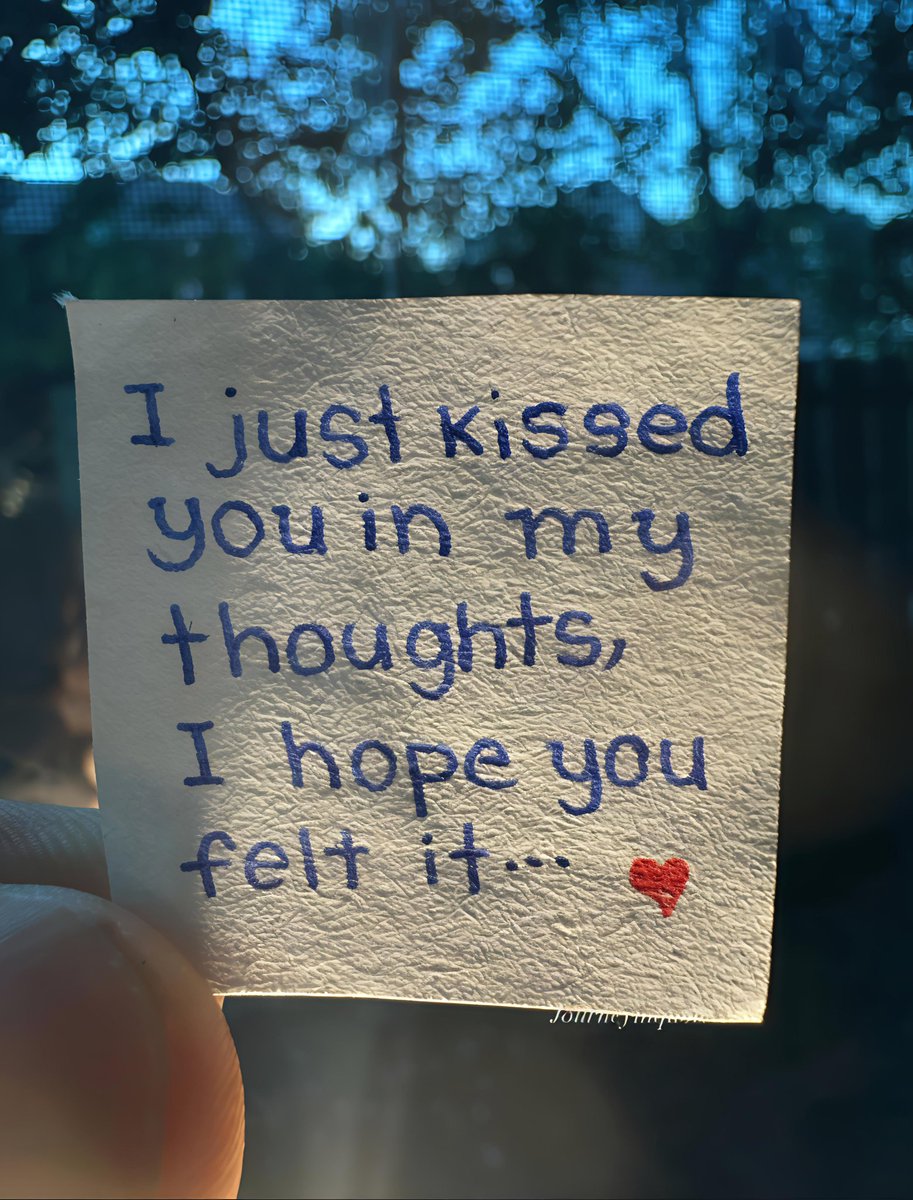 I just kissed
you in my
thoughts,
I hope you
felt it...